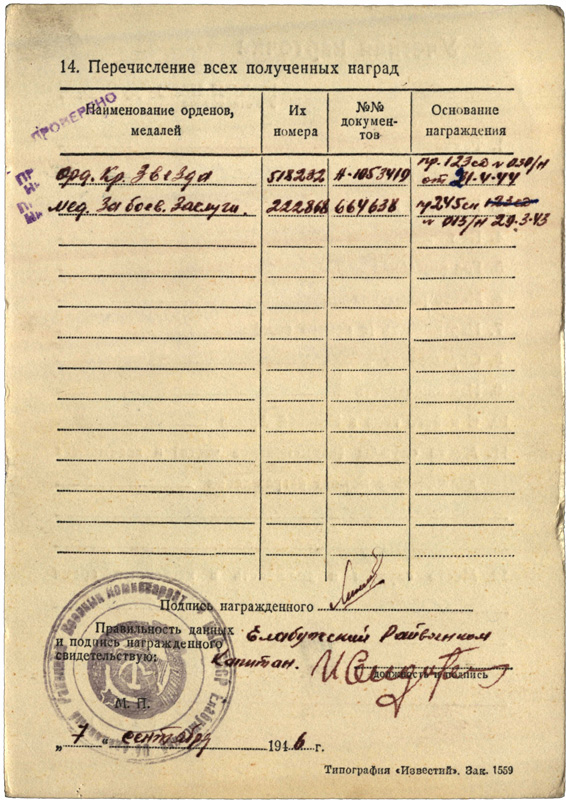 14. Перечисление всех полученных наград
Наименование орденов, медалей
Их номера
№№ докумен-тов
Основание награждения
ПРОВЕРЕНО
орд. Кр. Звезда 518232 А-1053419 пр. 123сд № 030/н
от 21.4.44
мед. За боев. Заслуги. 222868 664638 пр 245сп 123сд
№ 013/н 29.3.43
Подпись награжденного
Правильность данных
и подпись награжденного
свидетельствую:
Елабужский Райвоенком
Капитан.
должность и подпись
М. П.
„ 7 “ сентября 1946 г.
Типография «Известий». Зак. 1559